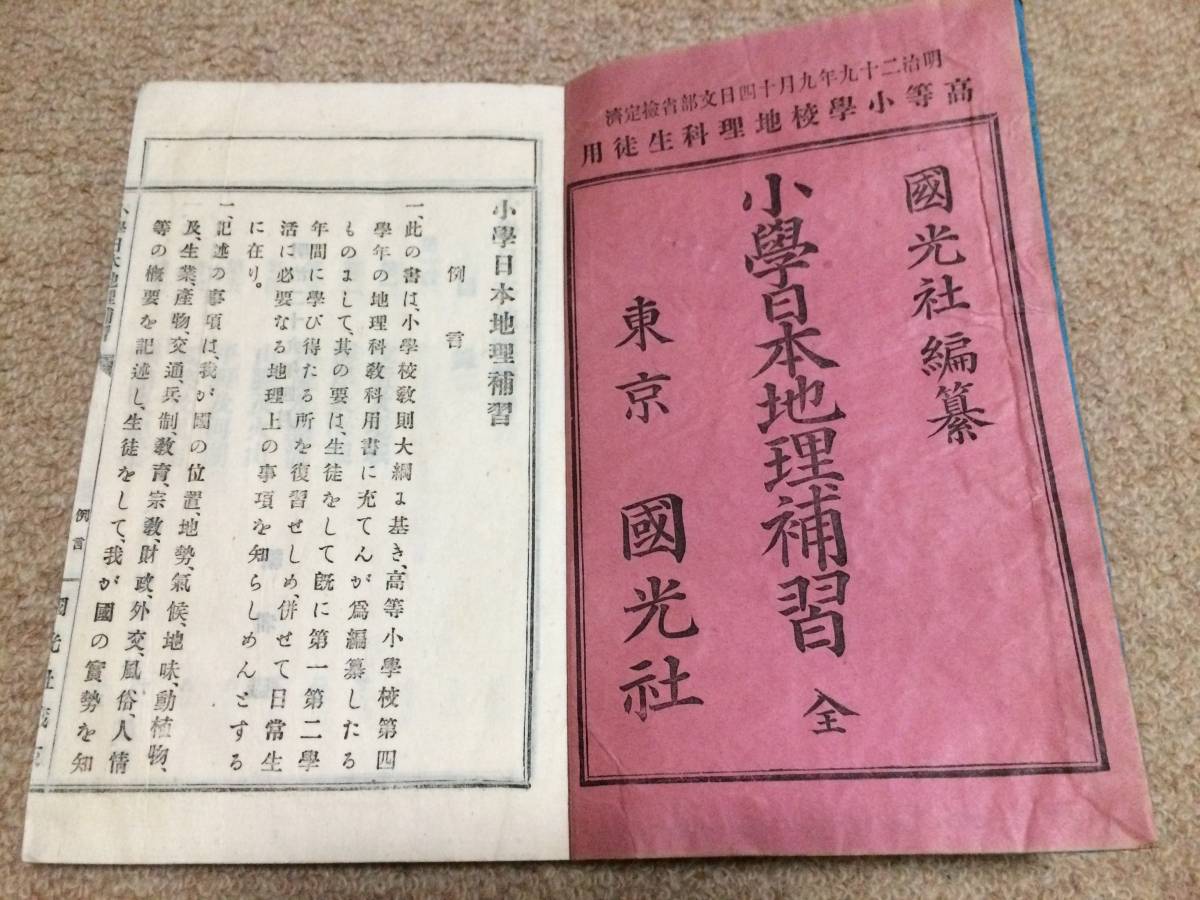 明治二十九年九月十四日文部省檢定濟
高等小學校地理科生徒用
國光社編纂
小學日本地理補習 全
東京 國光社
小學日本地理補習
例言
一、此の書は、小學校敎則大綱に基き、高等小學校第四
學年の地理科敎科用書に充てんが爲編纂したる
ものにして、其の要は、生徒をして旣に第一第二學
年間に學び得たる所を復習せしめ、併せて日常生
活に必要なる地理上の事項を知らしめんとする
に在り。
一、記述の事項は、我が國の位置、地勢、氣候、地味、動植物、
及、生業、產物、交通、兵制、敎育、宗敎、財政、外交、風俗、人情
等の槪要を記述し、生徒をして、我が國の實勢を知
小學日本地理補習
例言
國光社